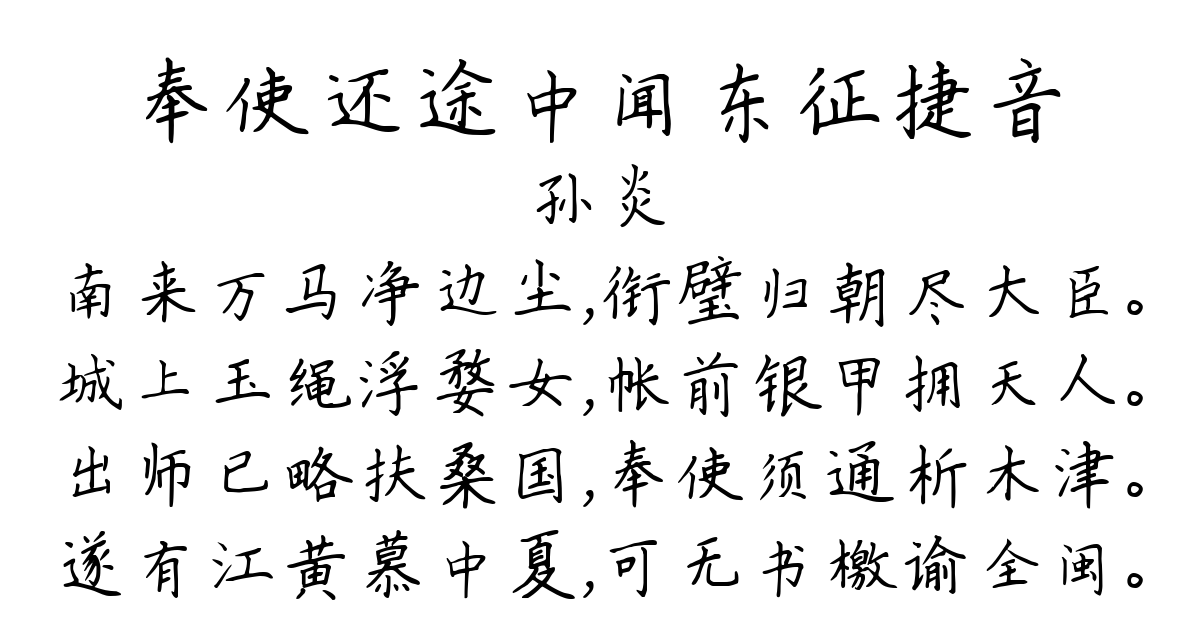 奉使还途中闻东征捷音
孙炎
南来万马净边尘,衔璧归朝尽大臣。
城上玉绳浮婺女,帐前银甲拥天人。
出师已略扶桑国,奉使须通析木津。
遂有江黄慕中夏,可无书檄谕全闽。